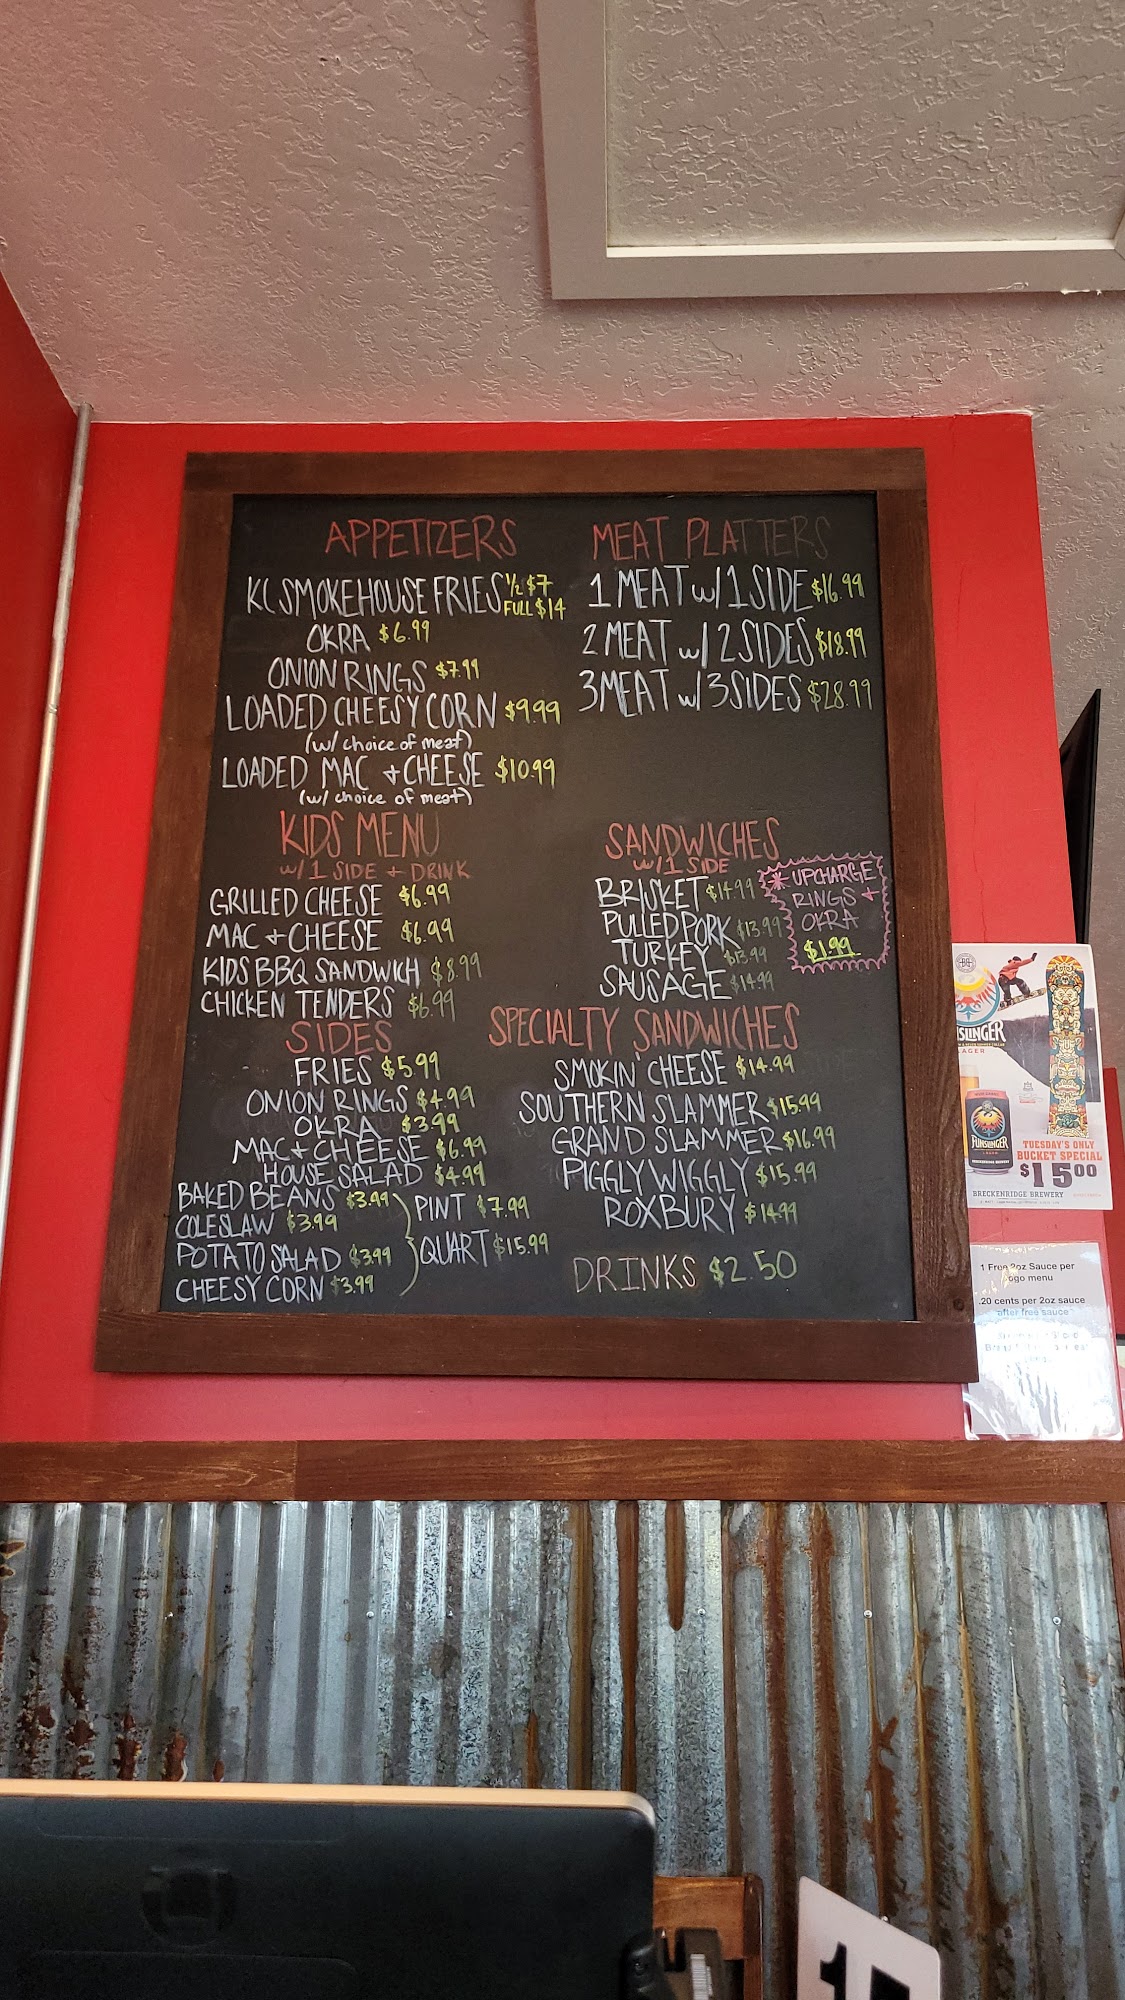 APPETIZERS
KC SMOKEHOUSE FRIES 1/2 $7
FULL $14
OKRA $6.99
ONION RINGS $7.99
LOADED CHEESY CORN $9.99
(w/ choice of meat)
LOADED MAC + CHEESE $10.99
(w/ choice of meat)
KIDS MENU
w/ 1 SIDE + DRINK
GRILLED CHEESE $6.99
MAC + CHEESE $6.99
KIDS BBQ SANDWICH $8.99
CHICKEN TENDERS $6.99
SIDES
FRIES $5.99
ONION RINGS $4.99
OKRA $3.99
MAC + CHEESE $6.99
HOUSE SALAD $4.99
BAKED BEANS $3.99
COLESLAW $3.99
POTATO SALAD $3.99
CHEESY CORN $3.99
PINT $7.99
QUART $15.99
MEAT PLATTERS
1 MEAT w/ 1 SIDE $16.99
2 MEAT w/ 2 SIDES $18.99
3 MEAT w/ 3 SIDES $28.99
SANDWICHES
w/ 1 SIDE
BRISKET $14.99
PULLED PORK $13.99
TURKEY $13.99
SAUSAGE $14.99
* UPCHARGE
RINGS +
OKRA
$1.99
SPECIALTY SANDWICHES
SMOKIN' CHEESE $14.99
SOUTHERN SLAMMER $15.99
GRAND SLAMMER $16.99
PIGGLY WIGGLY $15.99
ROXBURY $14.99
DRINKS $2.50
SLINGER
LAGER
FUNSLINGER
TUESDAY'S ONLY
BUCKET SPECIAL
$15.00
BRECKENRIDGE BREWERY
1 Free 2oz Sauce per
togo menu
.20 cents per 2oz sauce
after free sauce